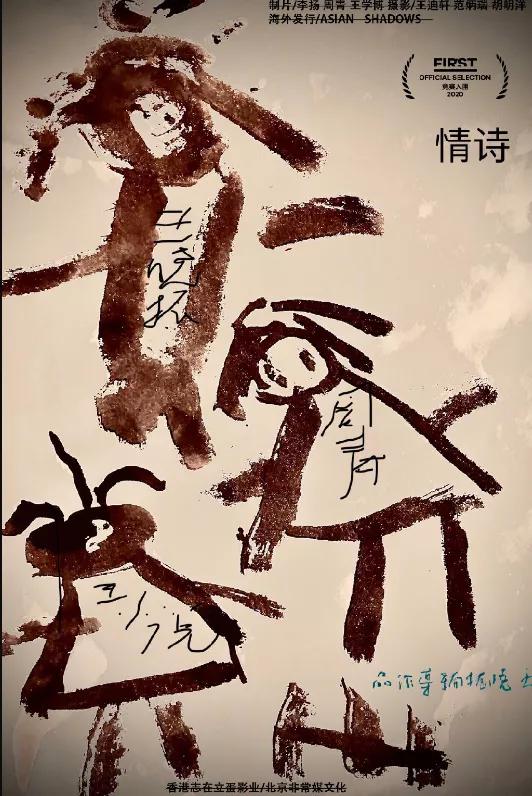 制片/李扬 周青 王学博 摄影/王迪轩 范炳瑞 胡明洋
海外发行/ASIAN SHADOWS
FIRST
OFFICIAL SELECTION
竞赛入围
2020
情诗
王晓振
周青
王小元
王晓振编导作品
香港志在立蛋影业/北京非常媒文化